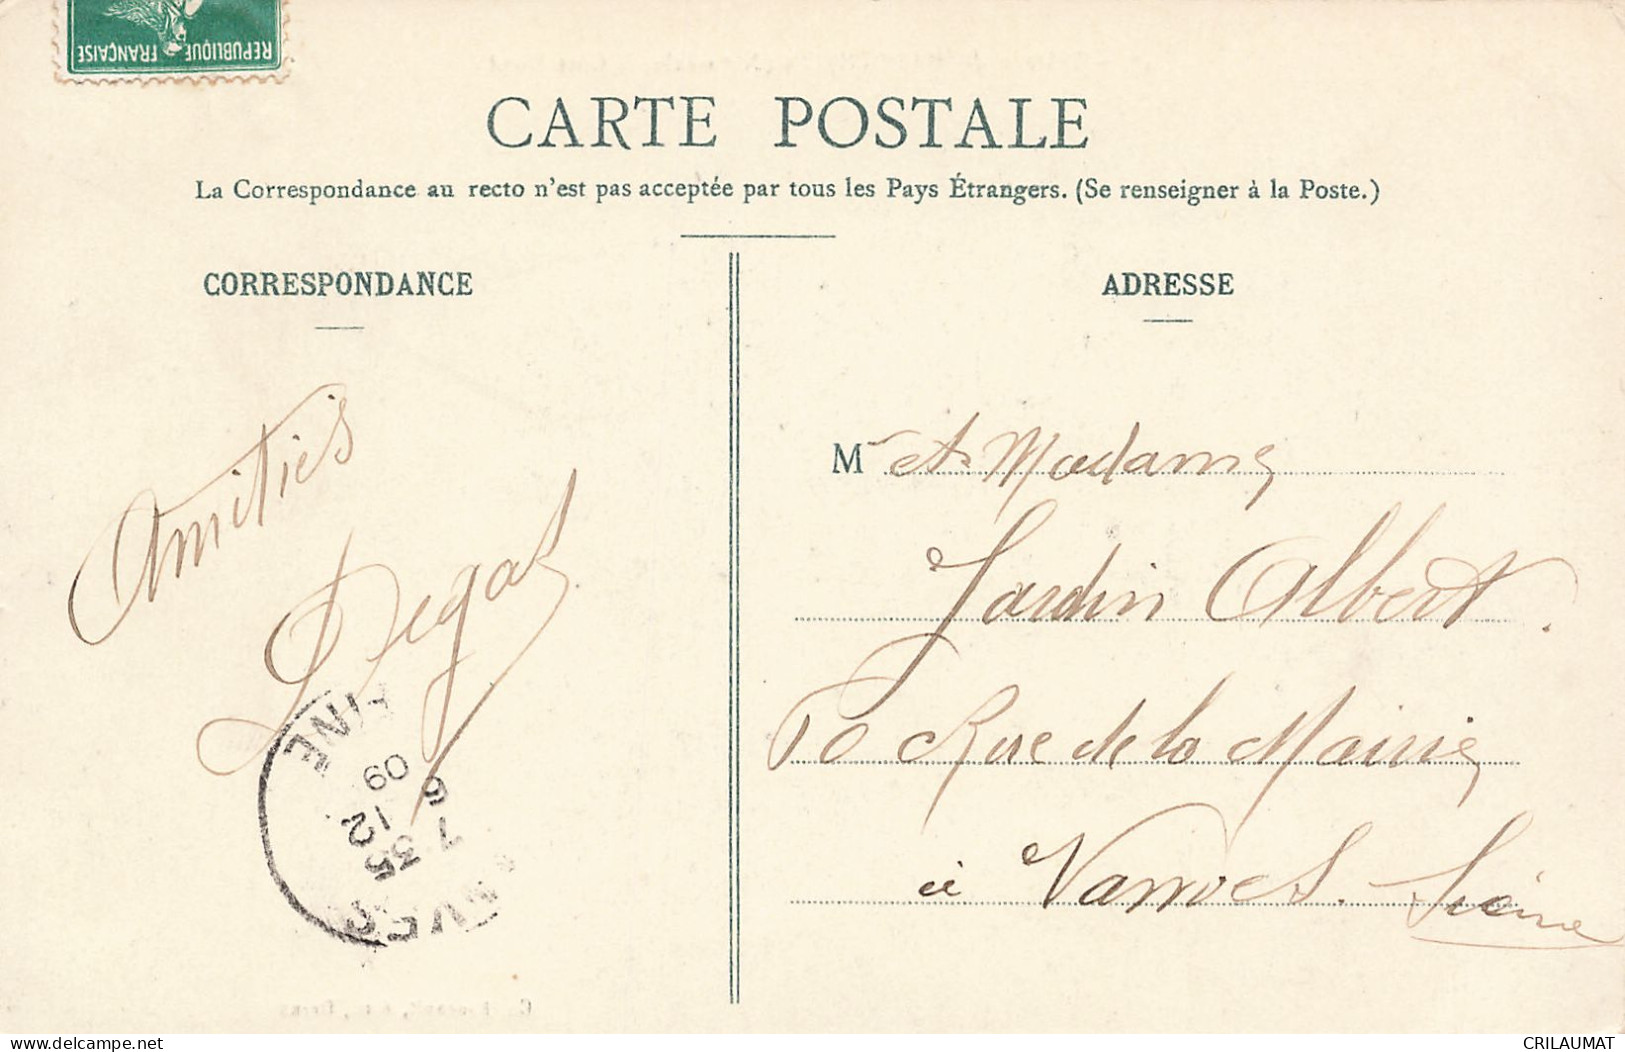 REPUBLIQUE FRANÇAISE
CARTE POSTALE
La Correspondance au recto n'est pas acceptée par tous les Pays Étrangers. (Se renseigner à la Poste.)
CORRESPONDANCE
Amitiés
ADRESSE
M et Madame
Jardin Albert.
Rue de la Mairie
à Vanves. Seine
INE
09
12
6
7 35
www.delcampe.net
CRILAUMAT